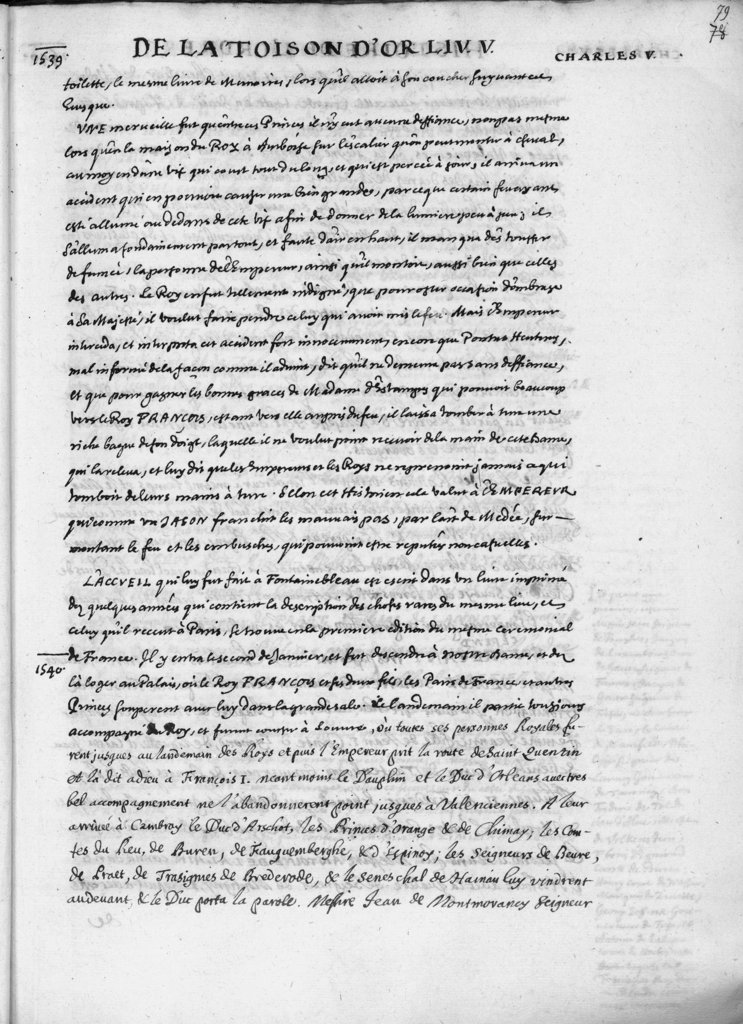 79
78
1539
DE LA TOISON D'OR LIV. V.
CHARLES V.
toilette, le mesme livre de Memoires, lors qu'il alloit à son coucher suyuant cet
Euesque.
VNE merveille fut qu'entre ces Princes il n'y eut aucune deffiance, non pas mesme
lors qu'en la maison du ROY à Amboise sur l'escalier qu'on peut monter à cheval,
au moyen d'une vis qui court tout du long, et qui est percée à jour, il arriva un
accident qui en pouvoit causer une bien grande, parce que certain feu ayant
esté allumé au dedans de cete vis afin de donner de la lumiere peu à peu; il
s'alluma soudainement partout, et faute d'air en haut, il manqua d'estouffer
de fumée, la personne de l'Empereur, ainsi qu'il montoit, aussi bien que celles
des autres. Le Roy en fut tellement indigné, que pour oster occasion d'ombrage
à Sa Majesté, il voulut faire pendre celuy qui avoit mis le feu. Mais l'Empereur
interceda, et interpreta cet accident fort innocemment, encore que Pontus Heuterus,
mal informé de la façon comme il advint, dit qu'il ne demeura pas sans deffiance,
et que pour gagner les bonnes graces de Madame d'Estampes qui pouvoit beaucoup
vers le Roy FRANÇOIS, estant vers elle aupres du feu, il laissa tomber à terre une
riche bague de son doigt, laquelle il ne voulut point recevoir de la main de cete Dame,
qui la releva, et luy dit que les Empereurs et les Roys ne reprenoient jamais ce qui
tomboit de leurs mains à terre. Selon cet Historien cela valut à l'EMPEREUR
qui comme un JASON franchit les mauvais pas, par l'art de Medée, sur-
montant le feu et les embusches, qui pouvoient estre reputées non casuelles.
L'ACCVEIL qui luy fut fait à Fontainebleau est escrit dans un livre imprimé
dez quelques années qui contient la description des choses rares du mesme lieu, et
celuy qu'il receut à Paris, se trouve en la premiere edition du mesme ceremonial
de France. Il y entra le second de Janvier, et fut descendre à nostre Dame, et de
1540
là loger au Palais, où le Roy FRANÇOIS et ses deux fils, les Pairs de France, et autres
Princes souperent avec luy dans la grande sale. Le landemain il partit tousjours
accompagné du Roy, et furent coucher à Louvre, où toutes ses personnes Royales fu-
rent jusques au landemain des Roys et puis l'Empereur prit la route de Saint Quentin
et là dit adieu à François I. neantmoins le Dauphin et le Duc d'Orleans avec tres
bel accompagnement ne l'abandonnerent point jusques à Valenciennes. A leur
arrivée à Cambray le Duc d'Arschot, les Princes d'Orange & de Chimay, les Com-
tes du Rieu, de Buren, de Fauquemberghe, & d'Espinoy; les Seigneurs de Beure,
de Praet, de Trasignies de Brederode, & le Seneschal de Hainau luy vindrent
audevant, & le Duc porta la parole. Messire Jean de Montmorancy Seigneur
de